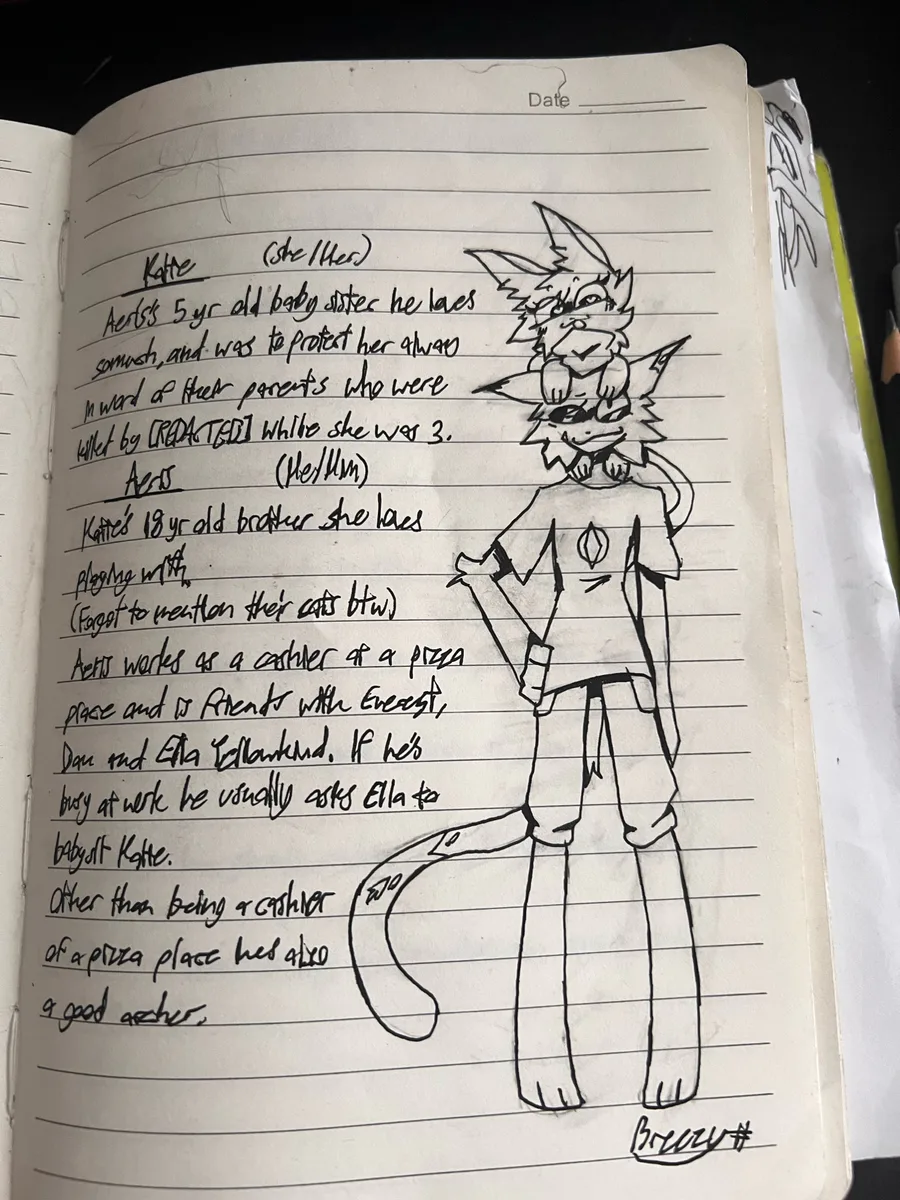 Date
Katie (she/Her)
Aeris's 5 yr old baby sister he loves
somuch, and was to protect her alway
in word of their parents who were
killed by [REDACTED] while she was 3.
Aeris (He/Him)
Katie's 18 yr old brother she loves
playing with
(Forgot to mention their cats btw)
Aeris works as a cashier at a pizza
place and is friends with Everest,
Dan and Ella. If he's
busy at work he usually asks Ella to
babysit Katie.
Other than being a cashier
of a pizza place hes also
a good archer.
Breezy#